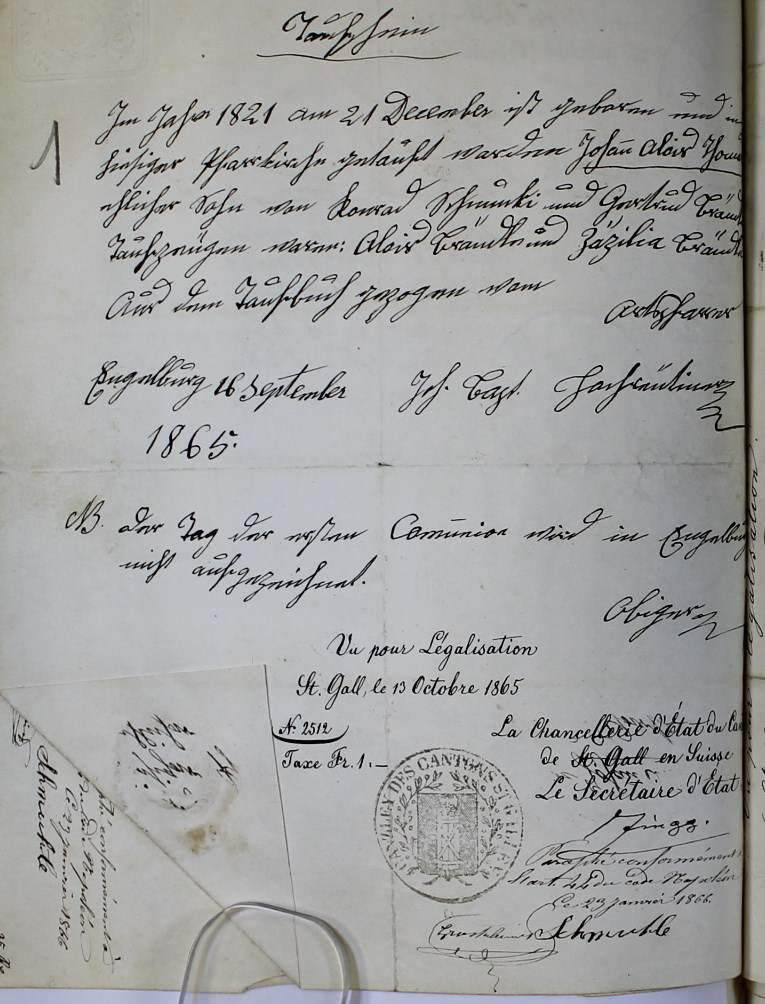 Taufschein
1
Im Jahre 1821 am 21 December ist geboren und in
hiesiger Pfarrkirche getauft worden Johan̄ Alois Thom
ehlicher Sohn von Konrad Schmucki und Gertrud Brändl
Taufzeugen waren: Alois Brändle und Zäzilia Brändle
Aus dem Taufbuch gezogen vom
Ortspfarrer
Engelburg 16 September
Joh. Bapt.
1865.
NB. Der Tag der ersten Com̄union wird in Engelburg
nicht aufgezeichnet.
Obiger
Vu pour Légalisation
St. Gall, le 13 Octobre 1865
No. 2512
Taxe Fr. 1.–
La Chancellerie d'État du Can
de St. Gall en Suisse
Le Secrétaire d'État
Zingg.
KANZLEY DES CANTONS ST. GALLEN
Paraphé conformément
l'art. 44 du code Napoléon
Ce 23 janvier 1866
Schmukle
conformément à
du code Napoléon
Ce 23 janvier 1866
Schmukle